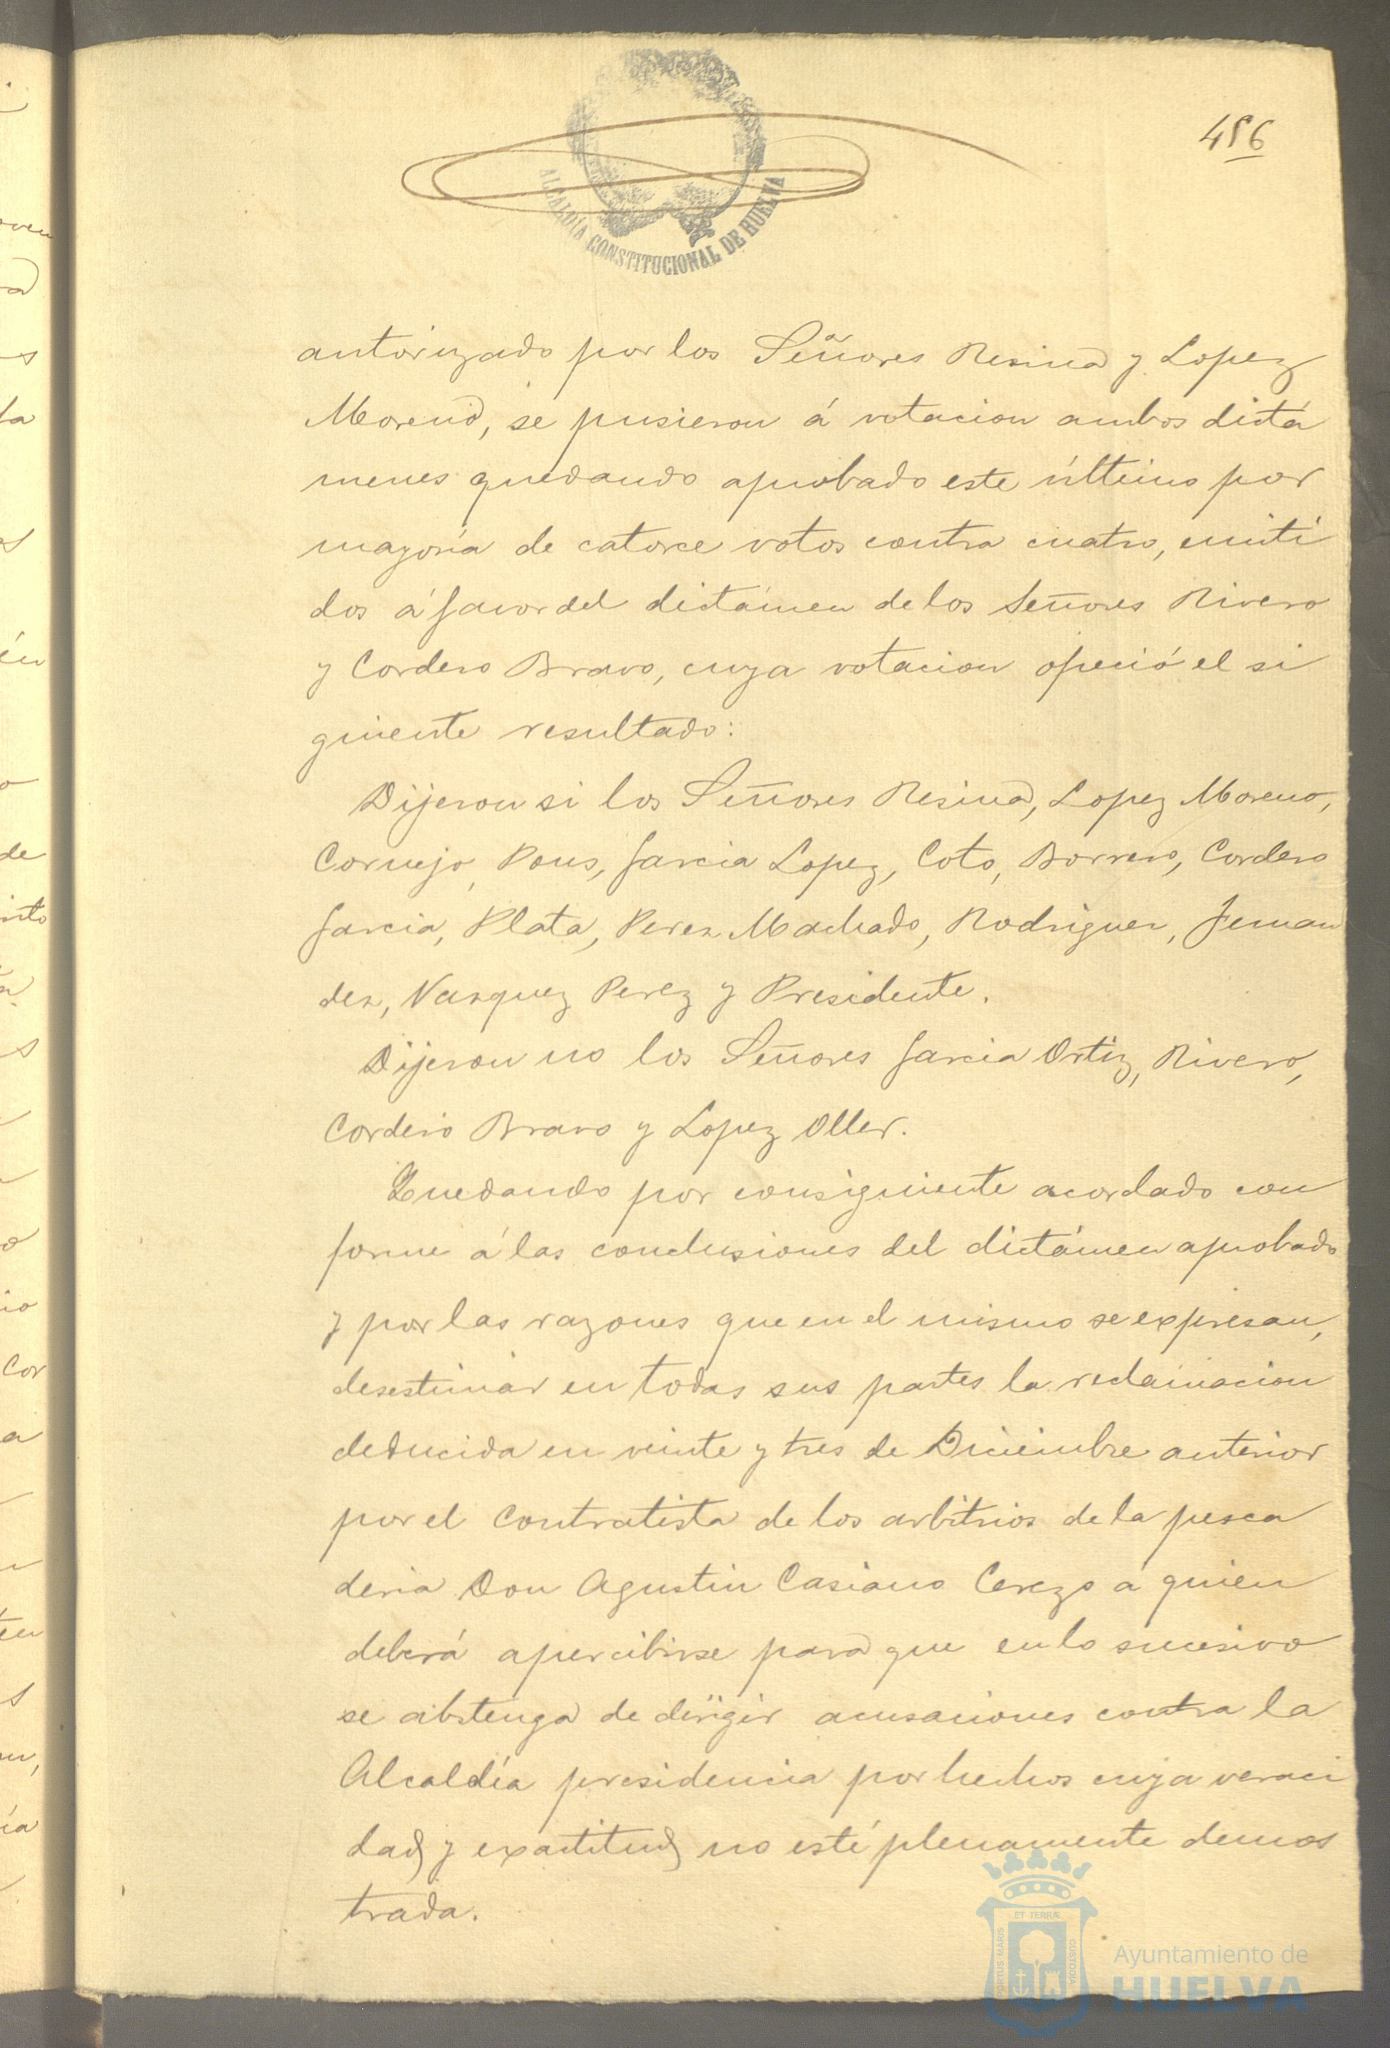 456
ALCALDÍA CONSTITUCIONAL DE HUELVA
autorizado por los Señores Resina y Lopez
Moreno, se pusieron á votacion ambos dictá
menes quedando aprobado este último por
mayoría de catorce votos contra cuatro, emiti
dos á favor del dictámen de los Señores Rivero
y Cordero Bravo, cuya votacion ofreció el si
guiente resultado:
Dijeron si los Señores Resina, Lopez Moreno,
Cornejo, Pons, Garcia Lopez, Coto, Borrero, Cordero
Garcia, Plata, Perez Machado, Rodriguez, Fernan
dez, Vazquez Perez y Presidente.
Dijeron no los Señores Garcia Ortiz, Rivero,
Cordero Bravo y Lopez Oller.
Quedando por consiguiente acordado con
forme á las conclusiones del dictámen aprobado
y por las razones que en el mismo se expresan,
desestimar en todas sus partes la reclamacion
deducida en veinte y tres de Diciembre anterior
por el contratista de los arbitrios de la pesca
deria Don Agustin Casiano Cerezo a quien
deberá apercibirse para que en lo sucesivo
se abstenga de dirigir acusaciones contra la
Alcaldía presidencia por hechos cuya veraci
dad y exactitud no esté plenamente demos
trada.
PORTUS MARIS ET TERRÆ CUSTODIA
Ayuntamiento de
HUELVA